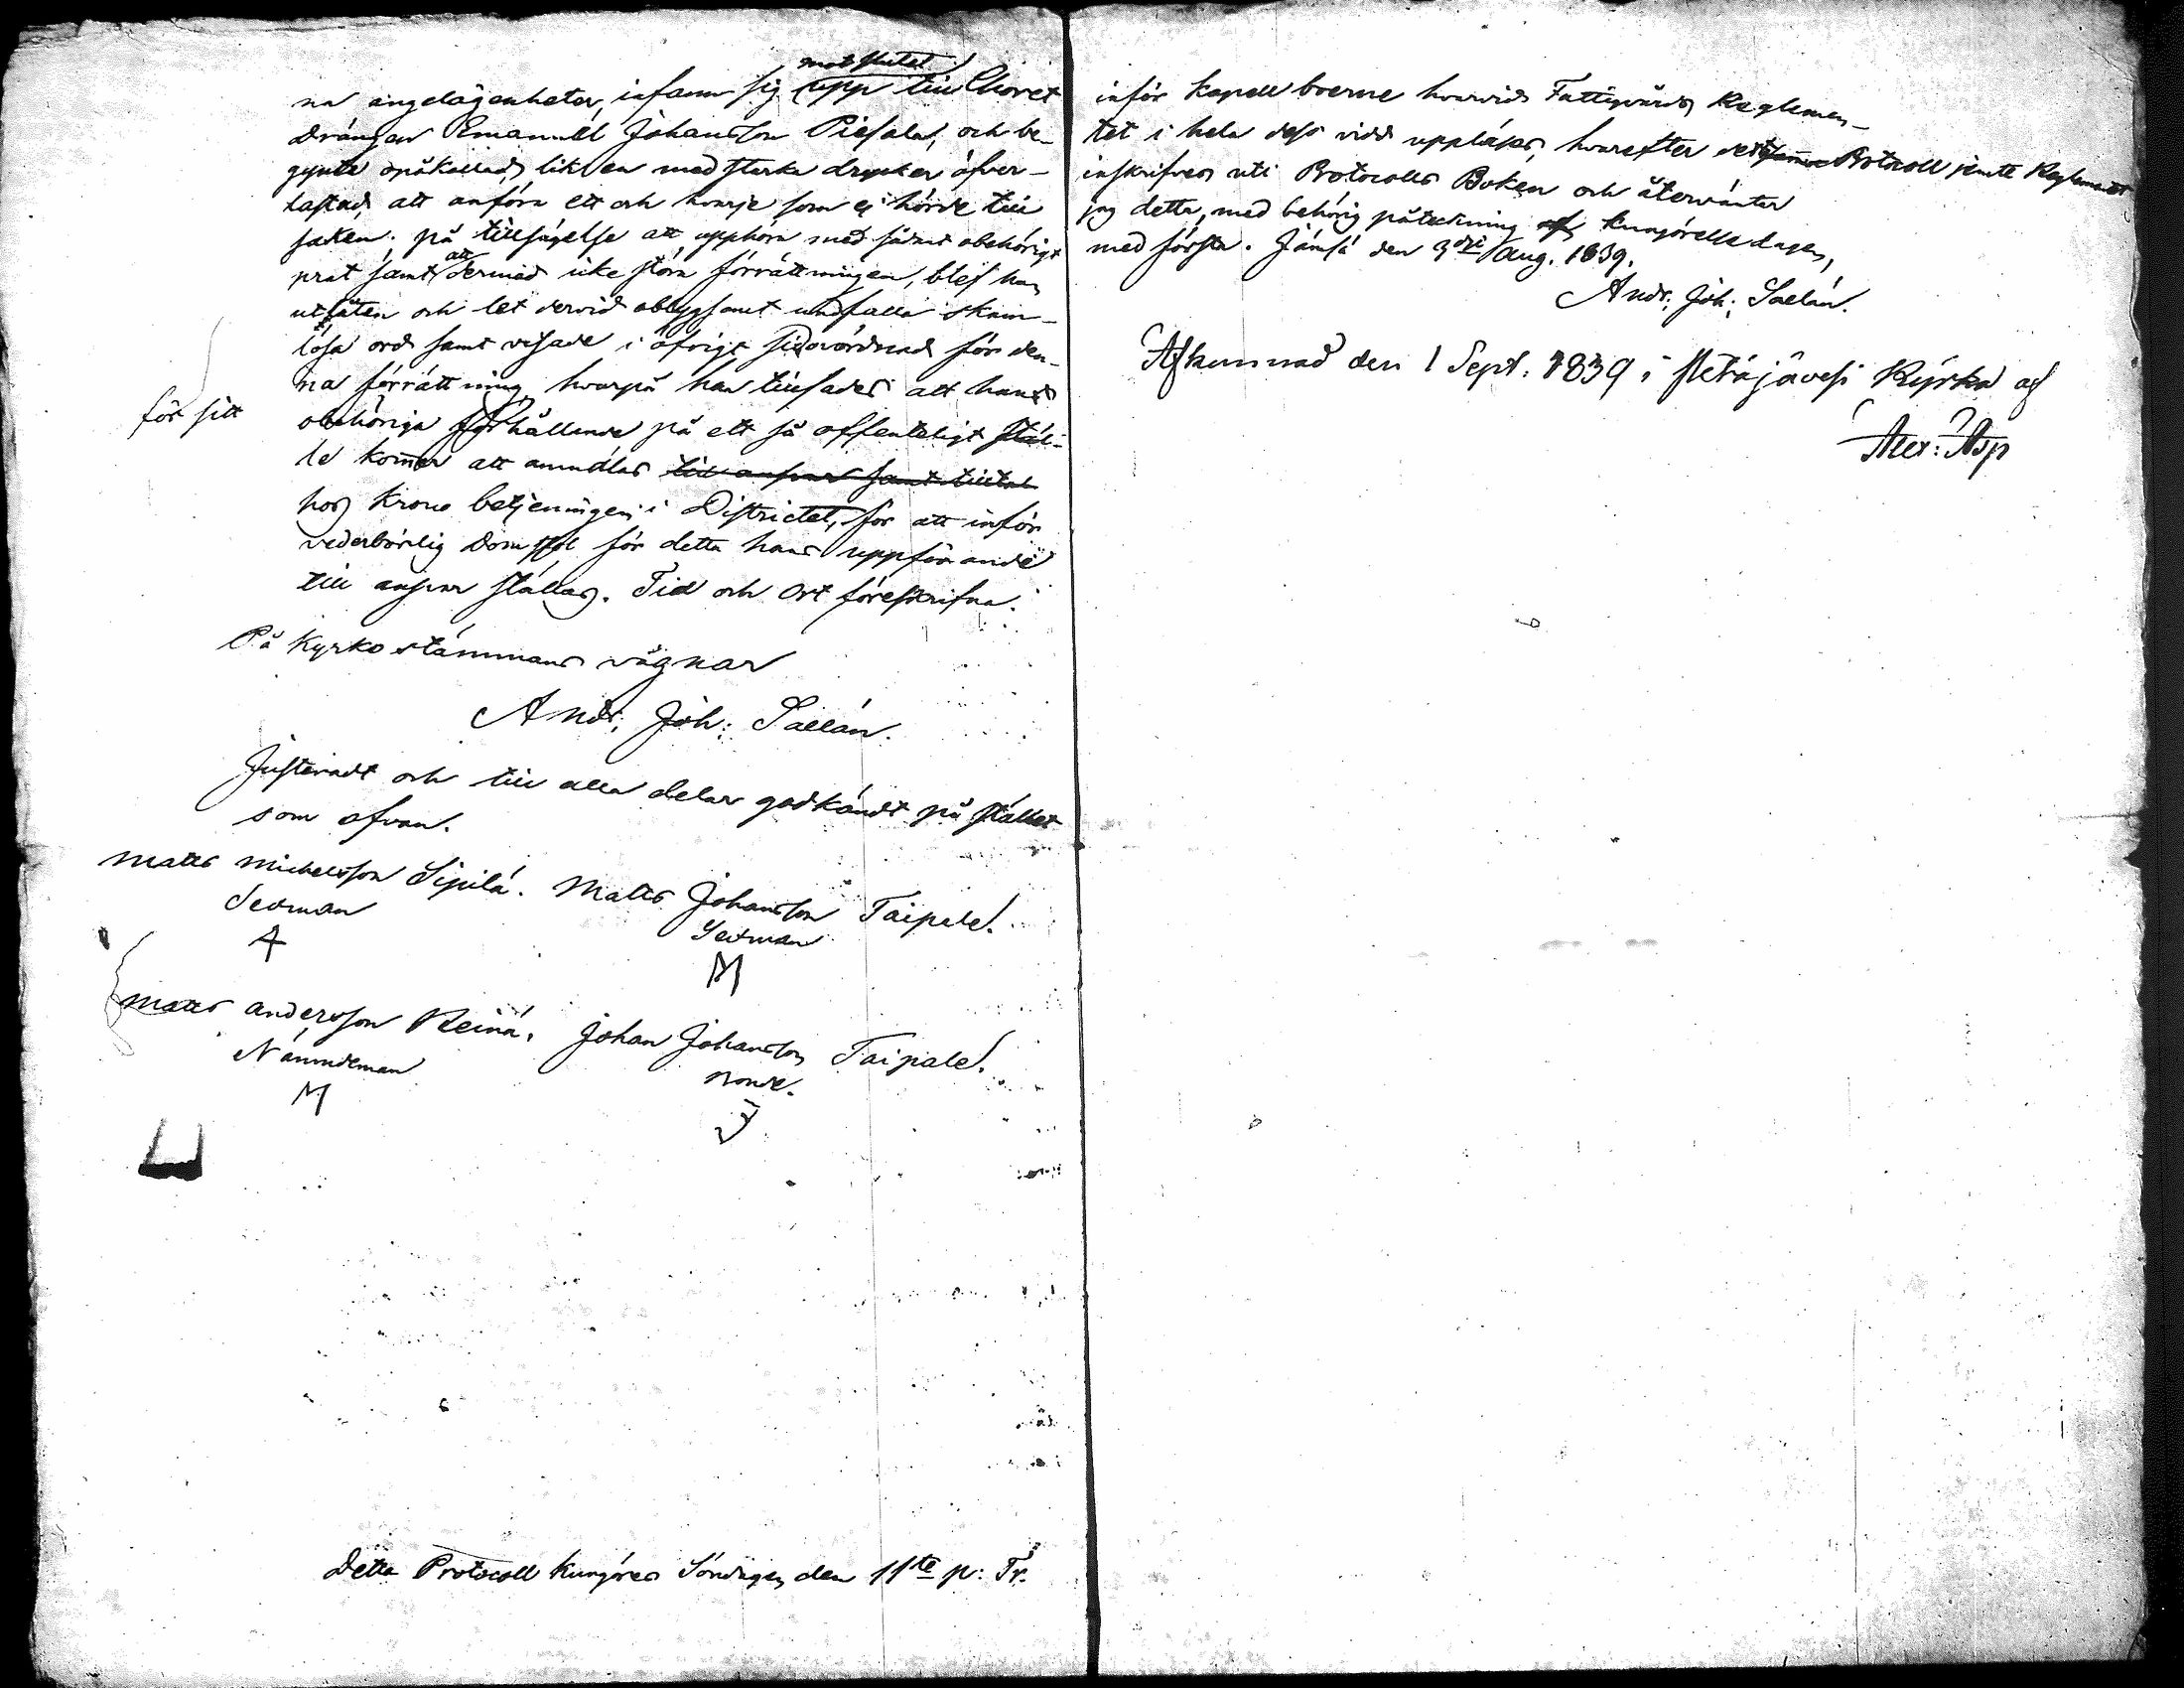 na angelägenheter, infann sig upp till Choret
mot slutet
drängen Emanuel Johansson Piesala, och be-
gynte opåkallad, lik en med starka drycker öfver-
lastad, att anföra ett och hvarje som ej hörde till
saken. på tillsägelse att upphöra med sådant obehörigt
prat samt att dermed icke störa förrättningen, blef han
utlåten och let dervid oblygsamt undfalla skam-
lösa ord samt visade i öfrigt sidovördnad för den-
na förrättning, hvarpå han tillsades att hans
för sitt
obehöriga förhållande på ett så offenteligt stäl-
le kommer att anmälas till ansvar samt tilltal
hos Krono betjeningen i Districtet, för att inför
vederbörlig Domstol för detta hans uppförande
till ansvar ställas. Tid och Ort föreskrifna.
På Kyrkostämmans vägnar
Andr. Joh: Sallán.
Justeradt och till alla delar godkändt på stället
som ofvan.
Matts Michelsson Sipilä. Matts Johansson Taipale.
Sexman Sexman
M
Matts Andersson Reinä. Johan Johansson Taipale.
Nämndeman Bonde.
M J
Detta Protocoll kungöres Söndagen den 11te p: Tr.
inför Kapellboerne hvarvid Fattigvårds Reglemen-
tet i hela dess vidd uppläses, hvarefter detsamma Protocoll jemte Reglementet
inskrifves uti Protocolls Boken och återväntar
jag detta, med behörig påteckning af kungörelsedagen,
med första. Jämsä den 3dje Aug. 1839.
Andr. Joh: Sallán.
Afkunnad den 1 Sept: 1839 i Petäjävesi Kyrka af
Alex: Asp